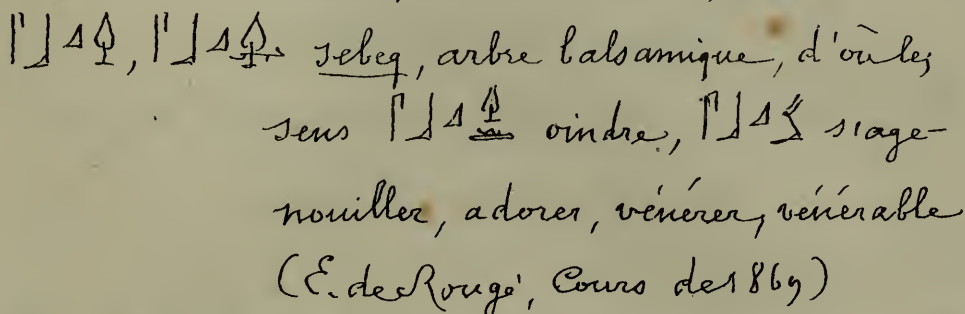 𓋴𓃀𓈎𓆭, 𓋴𓃀𓈎𓆭 sebeq, arbre balsamique, d'où les
sens 𓋴𓃀𓈎 oindre, 𓋴𓃀𓈎 s'age-
nouiller, adorer, vénérer, vénérable
(E. de Rougé, Cours de 1869)